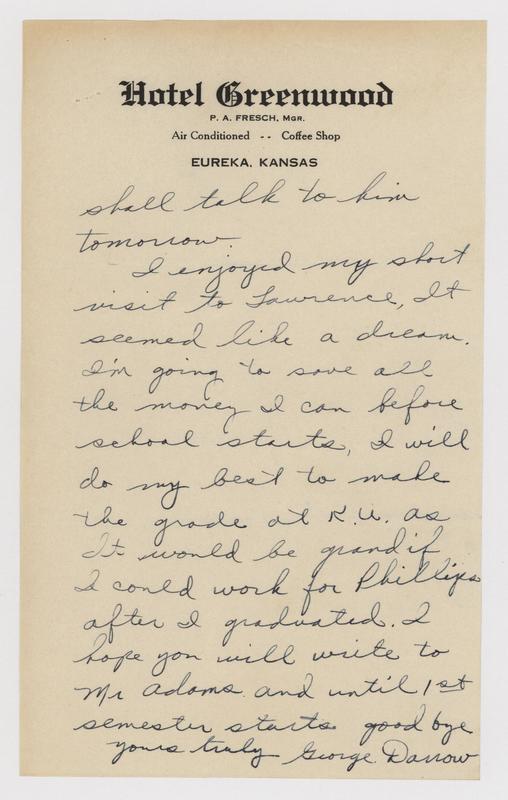 Hotel Greenwood
P. A. FRESCH, MGR.
Air Conditioned -- Coffee Shop
EUREKA, KANSAS
shall talk to him
tomorrow.
I enjoyed my short
visit to Lawrence, It
seemed like a dream.
I'm going to save all
the money I can before
school starts, I will
do my best to make
the grade at K.U. as
It would be grand if
I could work for Phillips
after I graduated. I
hope you will write to
Mr Adams and until 1st
semester starts good bye
yours truly George Darrow